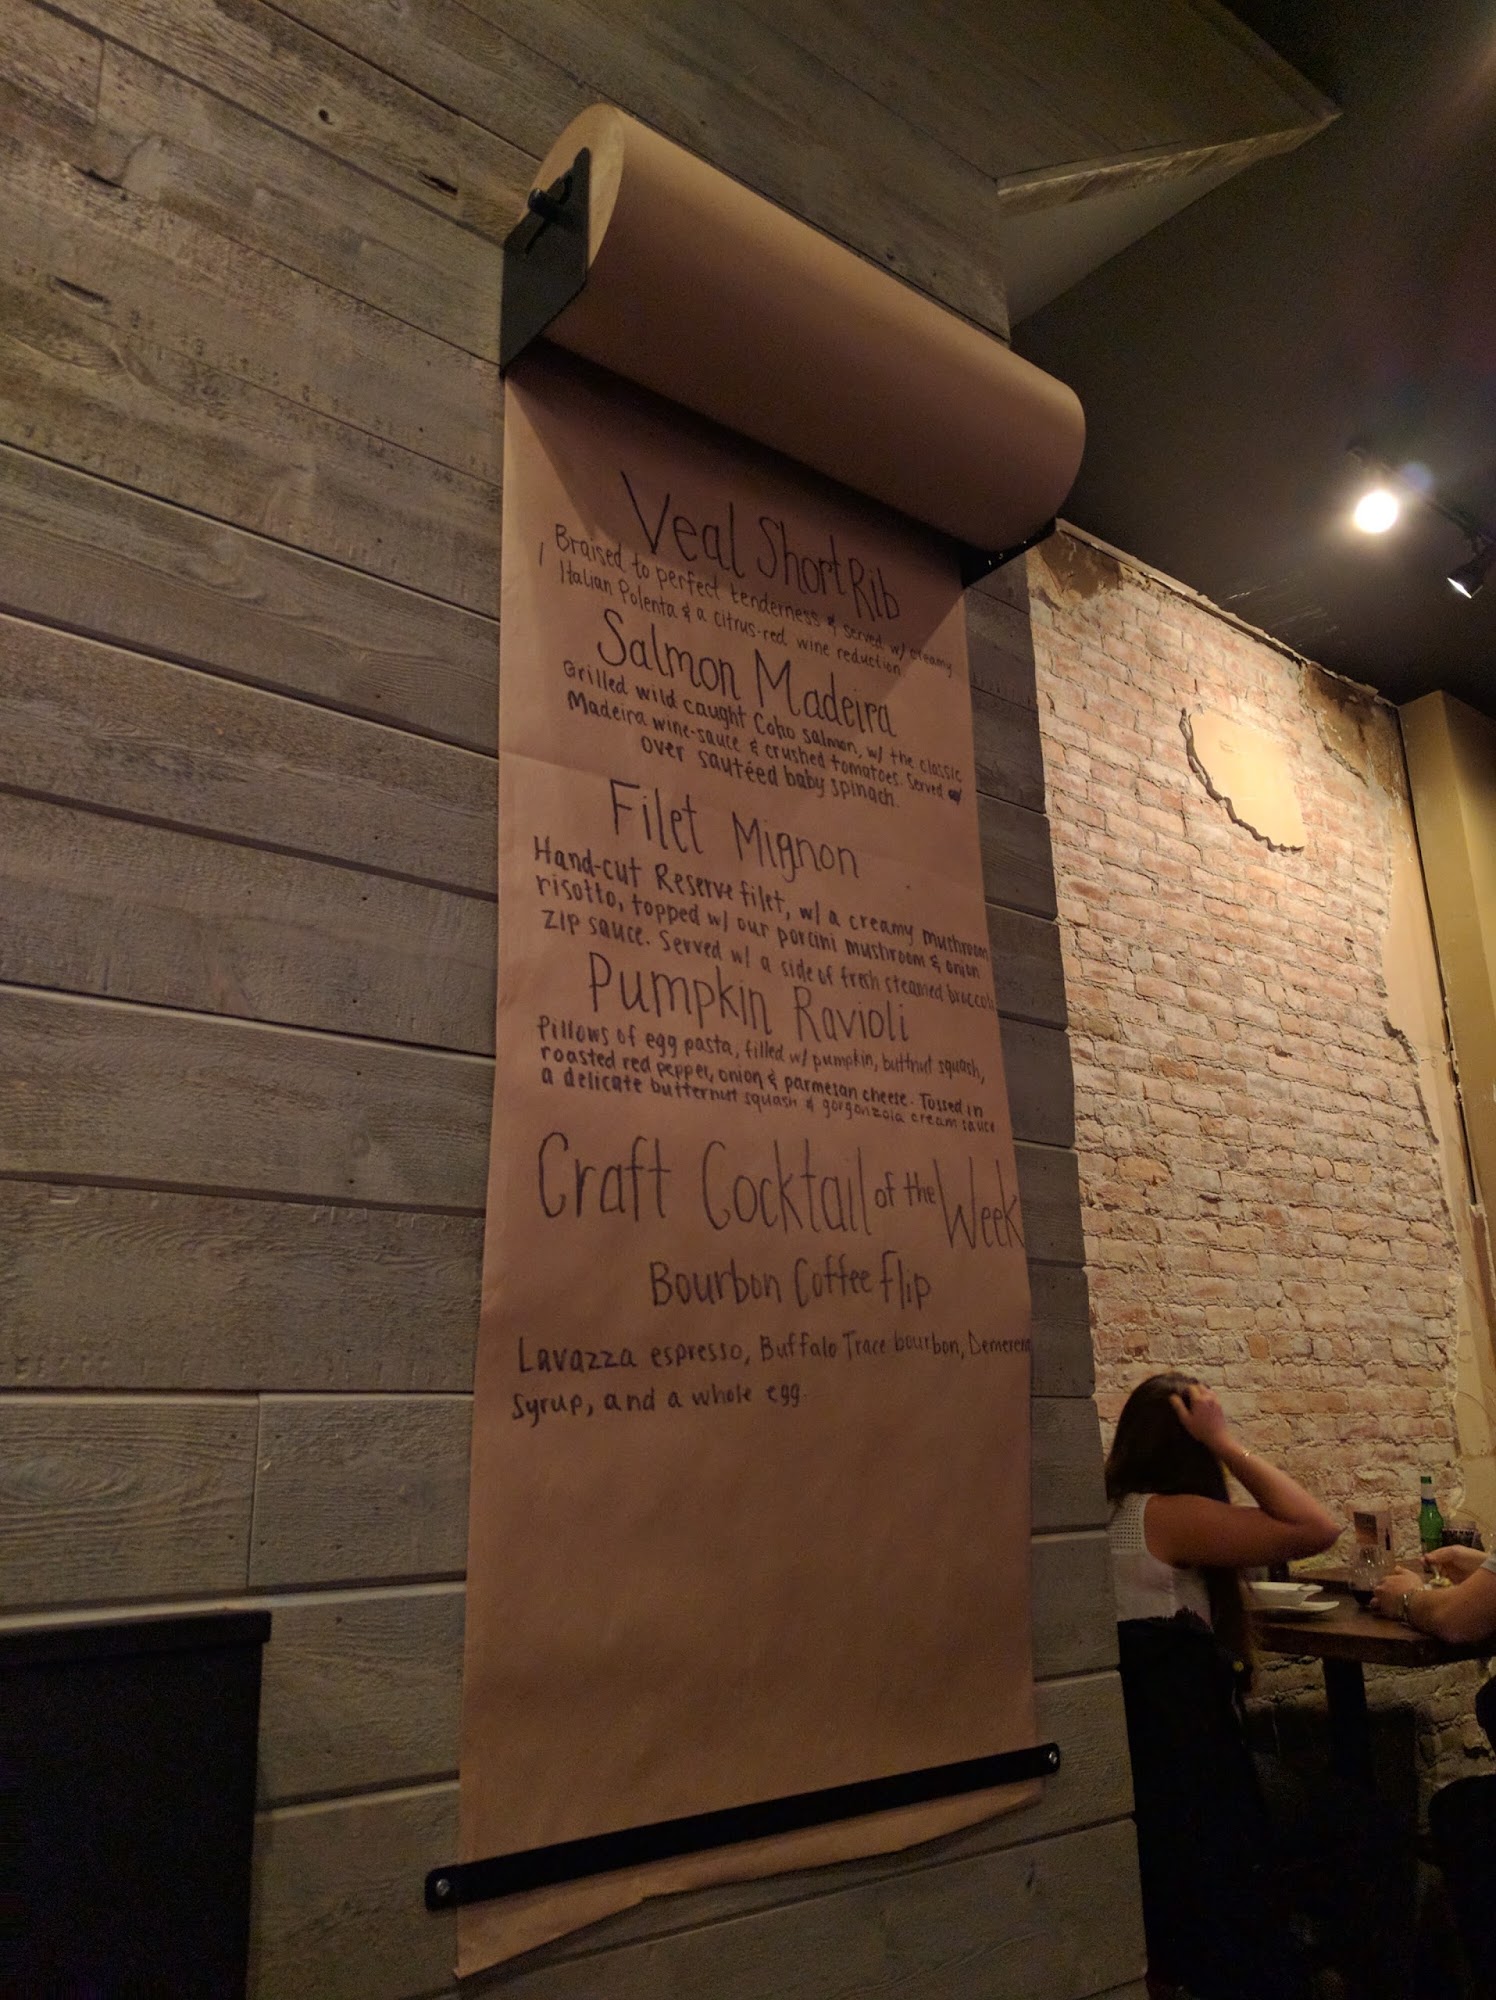 Veal Short Rib
Braised to perfect tenderness & served w/ creamy
Italian Polenta & a citrus-red wine reduction
Salmon Madeira
Grilled wild caught Coho salmon, w/ the classic
Madeira wine-sauce & crushed tomatoes. Served
over sautéed baby spinach.
Filet Mignon
Hand-cut Reserve filet, w/ a creamy mushroom
risotto, topped w/ our porcini mushroom & onion
zip sauce. Served w/ a side of fresh steamed broccoli
Pumpkin Ravioli
Pillows of egg pasta, filled w/ pumpkin, buttnut squash,
roasted red pepper, onion & parmesan cheese. Tossed in
a delicate butternut squash & gorgonzola cream sauce
Craft Cocktail of the Week
Bourbon Coffee Flip
Lavazza espresso, Buffalo Trace bourbon, Demerera
syrup, and a whole egg.